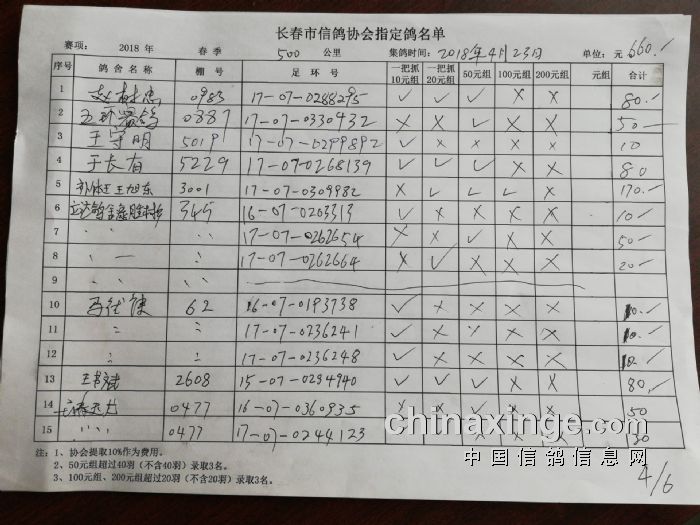 长春市信鸽协会指定鸽名单
赛项: 2018 年 春 季 500 公里 集鸽时间: 2018年4月23日 单位: 元 660.-
序号 鸽舍名称 棚号 足环号 一把抓10元组 一把抓20元组 50元组 100元组 200元组 元组 合计
1 赵树忠 0983 17-07-0288295 ✓ ✓ ✓ × × 80.-
2 0887 17-07-0330432 × × ✓ × × 50-
3 王守明 5019 17-07-0299892 ✓ × × × × 10
4 于长有 5229 17-07-0268139 ✓ ✓ ✓ × × 80
5 王旭东 3001 17-07-0309982 × ✓ ✓ ✓ × 170.-
6 345 16-07-0203313 ✓ × × × × 10.-
7 〃 〃 17-07-0262654 × × ✓ × × 50.-
8 〃 17-07-0262664 × ✓ × × × 20.-
9 〃 〃
10 62 16-07-0193738 ✓ × × × × 10.-
11 〃 〃 17-07-0236241 ✓ × × × × 10.-
12 〃 〃 17-07-0236248 ✓ × × × × 10.-
13 王书斌 2608 15-07-0294940 ✓ ✓ ✓ × × 80.-
14 0477 16-07-0360935 50
15 〃 〃 0477 17-07-0244123
注: 1、协会提取10%作为费用。
2、50元组超过40羽(不含40羽)录取3名。
3、100元组、200元组超过20羽(不含20羽)录取3名。
4/6
chinaxinge.com
中国信鸽信息网